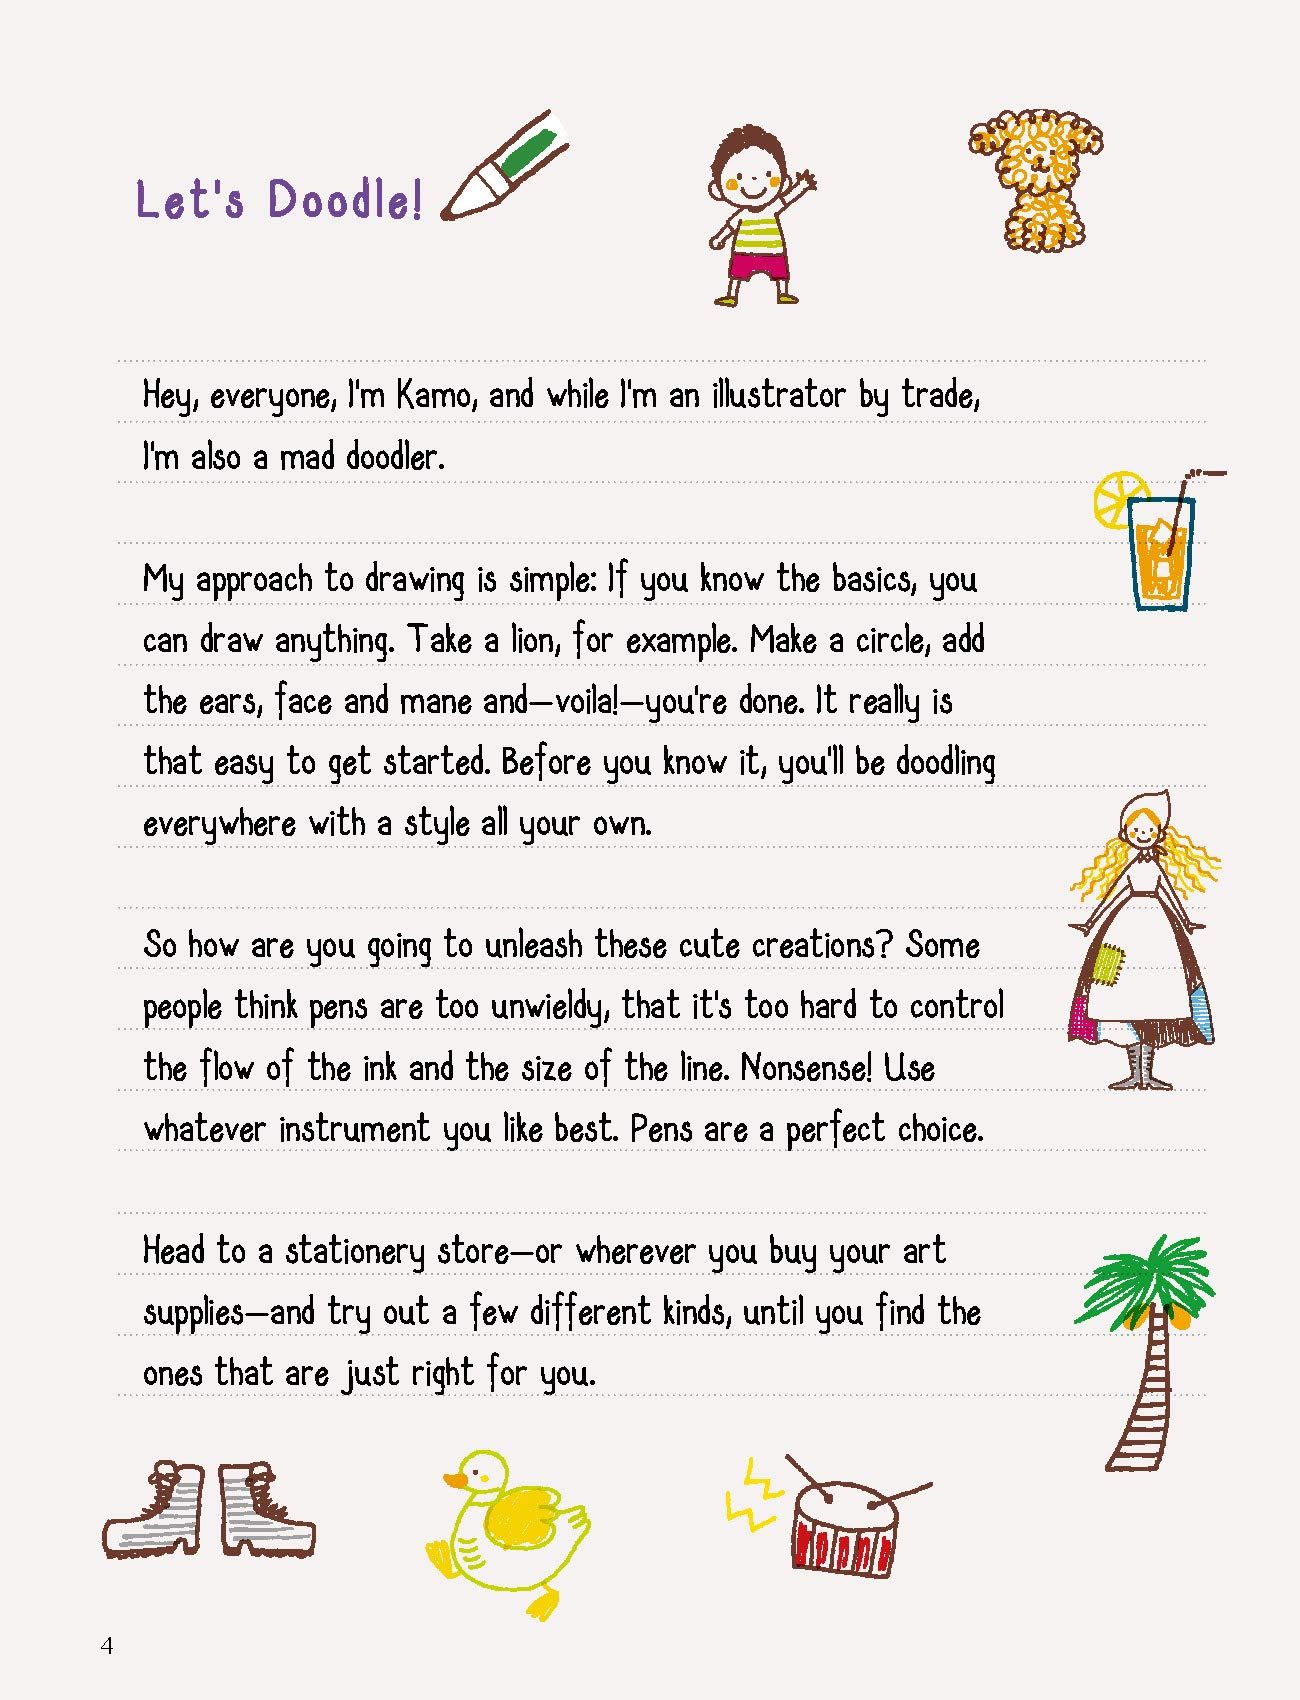 Let's Doodle!
Hey, everyone, I'm Kamo, and while I'm an illustrator by trade,
I'm also a mad doodler.
My approach to drawing is simple: If you know the basics, you
can draw anything. Take a lion, for example. Make a circle, add
the ears, face and mane and—voila!—you're done. It really is
that easy to get started. Before you know it, you'll be doodling
everywhere with a style all your own.
So how are you going to unleash these cute creations? Some
people think pens are too unwieldy, that it's too hard to control
the flow of the ink and the size of the line. Nonsense! Use
whatever instrument you like best. Pens are a perfect choice.
Head to a stationery store—or wherever you buy your art
supplies—and try out a few different kinds, until you find the
ones that are just right for you.
4